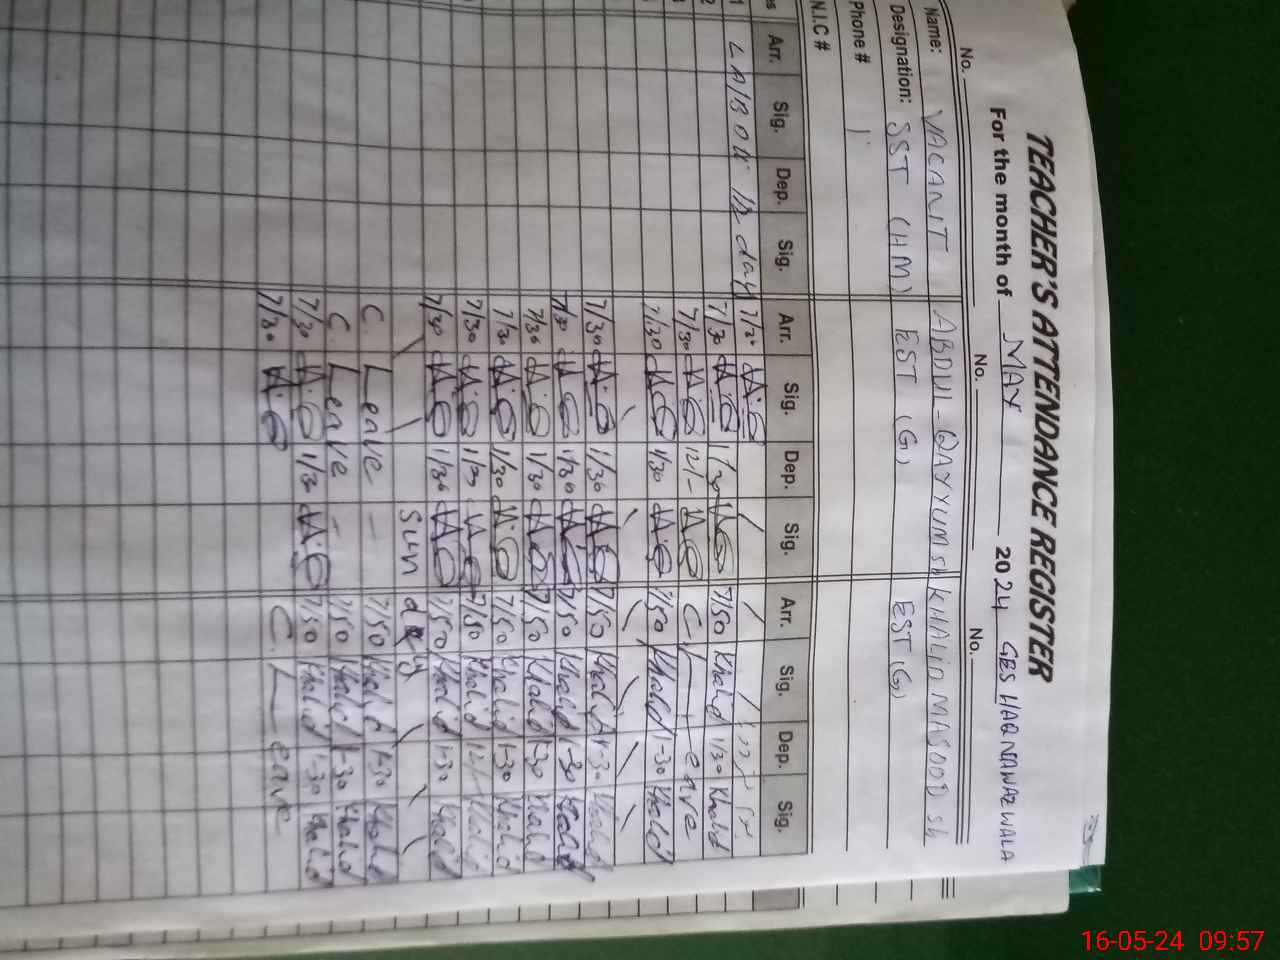 TEACHER'S ATTENDANCE REGISTER
For the month of MAY 2024 GES HAQ NAWAZ WALA
No. No. No.
Name: VACANT ABDUL-QAYYUM sh KHALID MASOOD sh
Designation: SST (HM) EST (G) EST (G)
Phone #
N.I.C #
Arr. Sig. Dep. Sig. Arr. Sig. Dep. Sig. Arr. Sig. Dep. Sig.
1 LABOUR day 7/30
2 7/30 1/30 7/50 Khalid 1/30 Khalid
7/30 12/- C. Leave
7/30 1/30 7/50 Khalid 1-30 Khalid
7/30 1/30 7/50 Khalid 1-30 Khalid
7/30 1/30 7/50 Khalid 1-30 Khalid
7/30 1/30 7/50 Khalid 1-30 Khalid
7/30 1/30 7/50 Khalid 1-30 Khalid
7/30 1/30 7/50 Khalid 12/- Khalid
7/30 1/30 7/50 Khalid 1-30 Khalid
Sunday
C. Leave - 7/50 Khalid 1-30 Khalid
C. Leave - 7/50 Khalid 1-30 Khalid
7/30 1/30 7/50 Khalid 1-30 Khalid
7/30 C. Leave
16-05-24 09:57